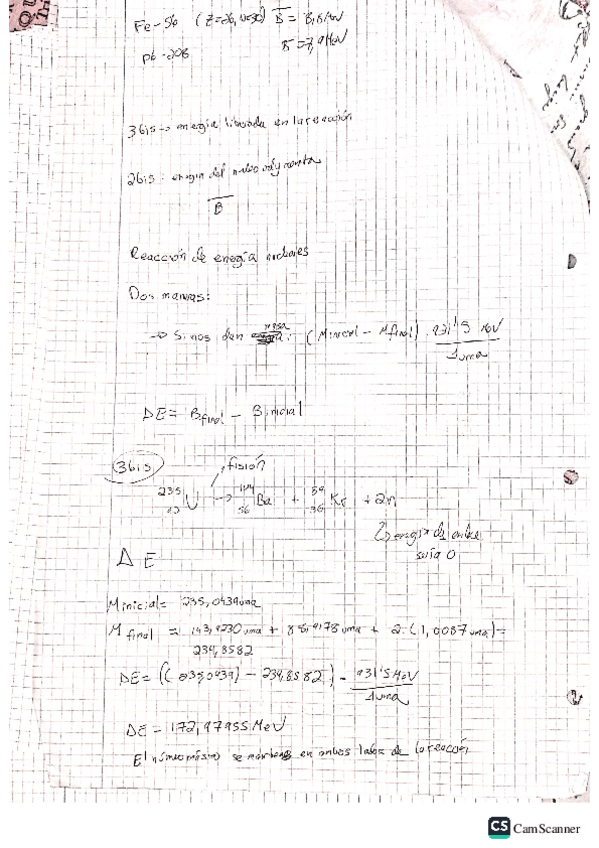 Fe-56 (Z=26, N=30) B = 8,8 MeV
Pb-208 B = 7,9 MeV
3bis → energía liberada en la reacción
2bis: energía del núcleo
B
Reacción de energía nucleares
Dos maneras:
→ Si nos dan masa: (Minicial - Mfinal) · 931'5 MeV / 1uma
DE = Bfinal - Binicial
3bis
fisión
235 U → 144 56 Ba + 89 36 Kr + 2n
energía de enlace
sería 0
Δ E
Minicial = 235,0439uma
Mfinal = 143,9230 uma + 88,9178 uma + 2·(1,0087 uma) =
234,8582
DE = ((235,0439) - 234,8582) · 931'5 MeV / 1uma
DE = 172,97955 MeV
El número másico se mantiene en ambos lados de la reacción
CS CamScanner